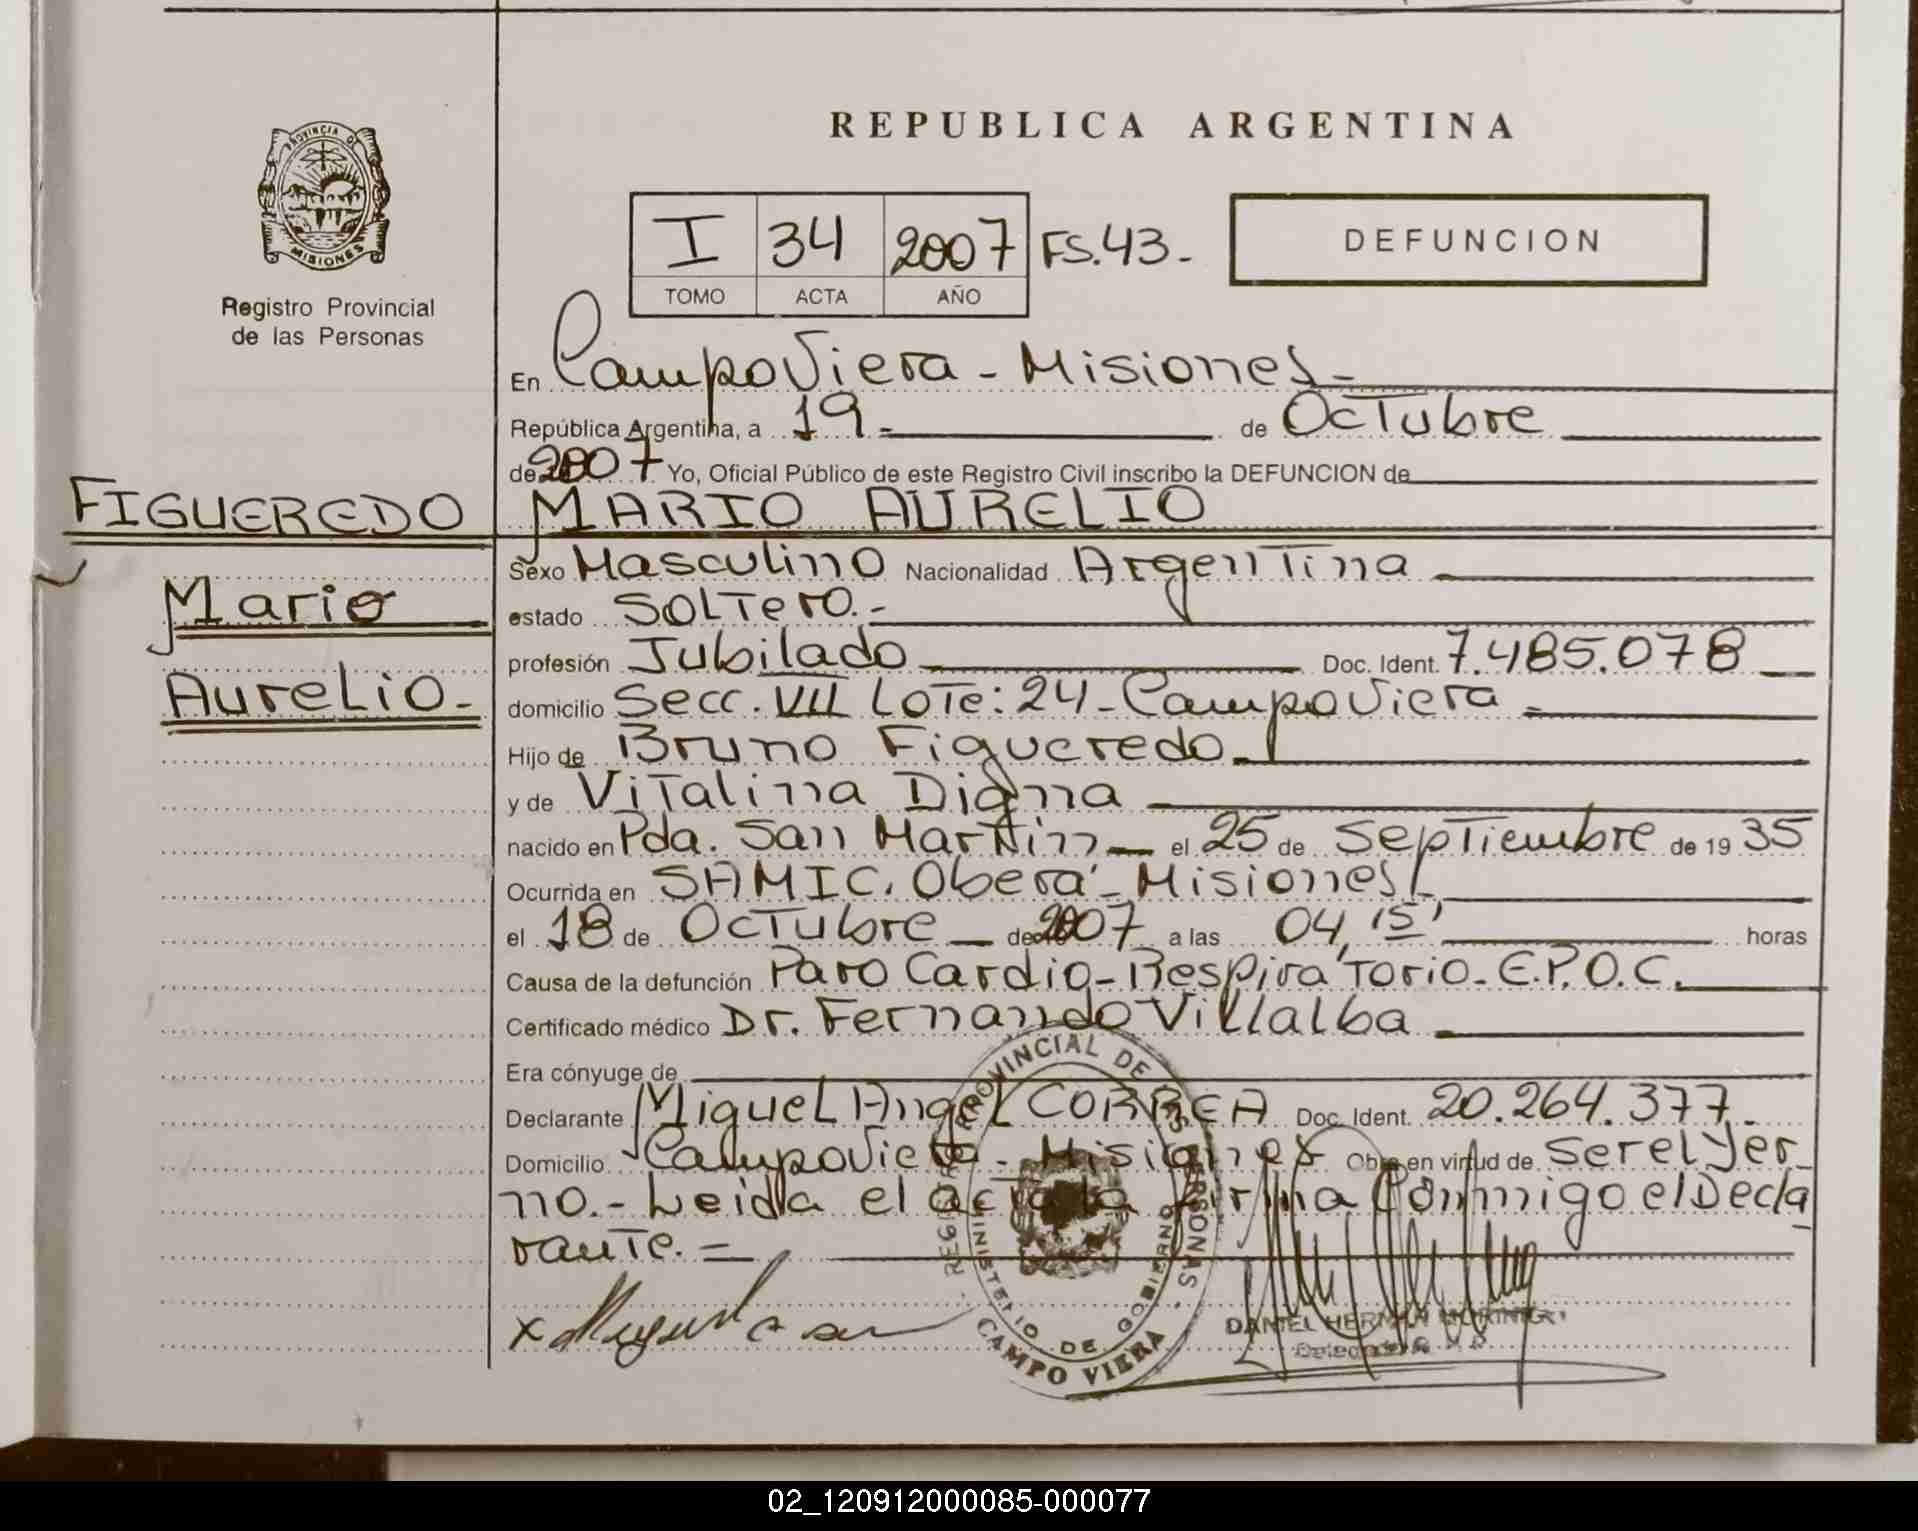 REPUBLICA ARGENTINA
PROVINCIA DE
MISIONES
Registro Provincial
de las Personas
I 34 2007 FS.43.-
TOMO ACTA AÑO
DEFUNCION
En Campo Viera - Misiones.-
República Argentina, a 19.- de Octubre
de 2007 Yo, Oficial Público de este Registro Civil inscribo la DEFUNCION de
FIGUEREDO MARIO AURELIO
Mario
Aurelio.-
Sexo Masculino Nacionalidad Argentina
estado Soltero.-
profesión Jubilado Doc. Ident. 7.485.078
domicilio Secc. VII Lote: 24 - Campo Viera.-
Hijo de Bruno Figueredo.-
y de Vitalina Digna
nacido en Pda. San Martin el 25 de Septiembre de 1935
Ocurrida en SAMIC. Oberá - Misiones.
el 18 de Octubre de 2007 a las 04,15' horas
Causa de la defunción Paro Cardio-Respiratorio-E.P.O.C.
Certificado médico Dr. Fernando Villalba
Era cónyuge de
Declarante Miguel Angel CORREA Doc. Ident. 20.264.377.-
Domicilio Campo Viera - Misiones Obra en virtud de ser el Yer
no.- Leida el acta la firma Conmigo el Decla
rante.=
x
REGISTRO PROVINCIAL DE LAS PERSONAS
MINISTERIO DE GOBIERNO
CAMPO VIERA
DANIEL HERMAN
02_120912000085-000077